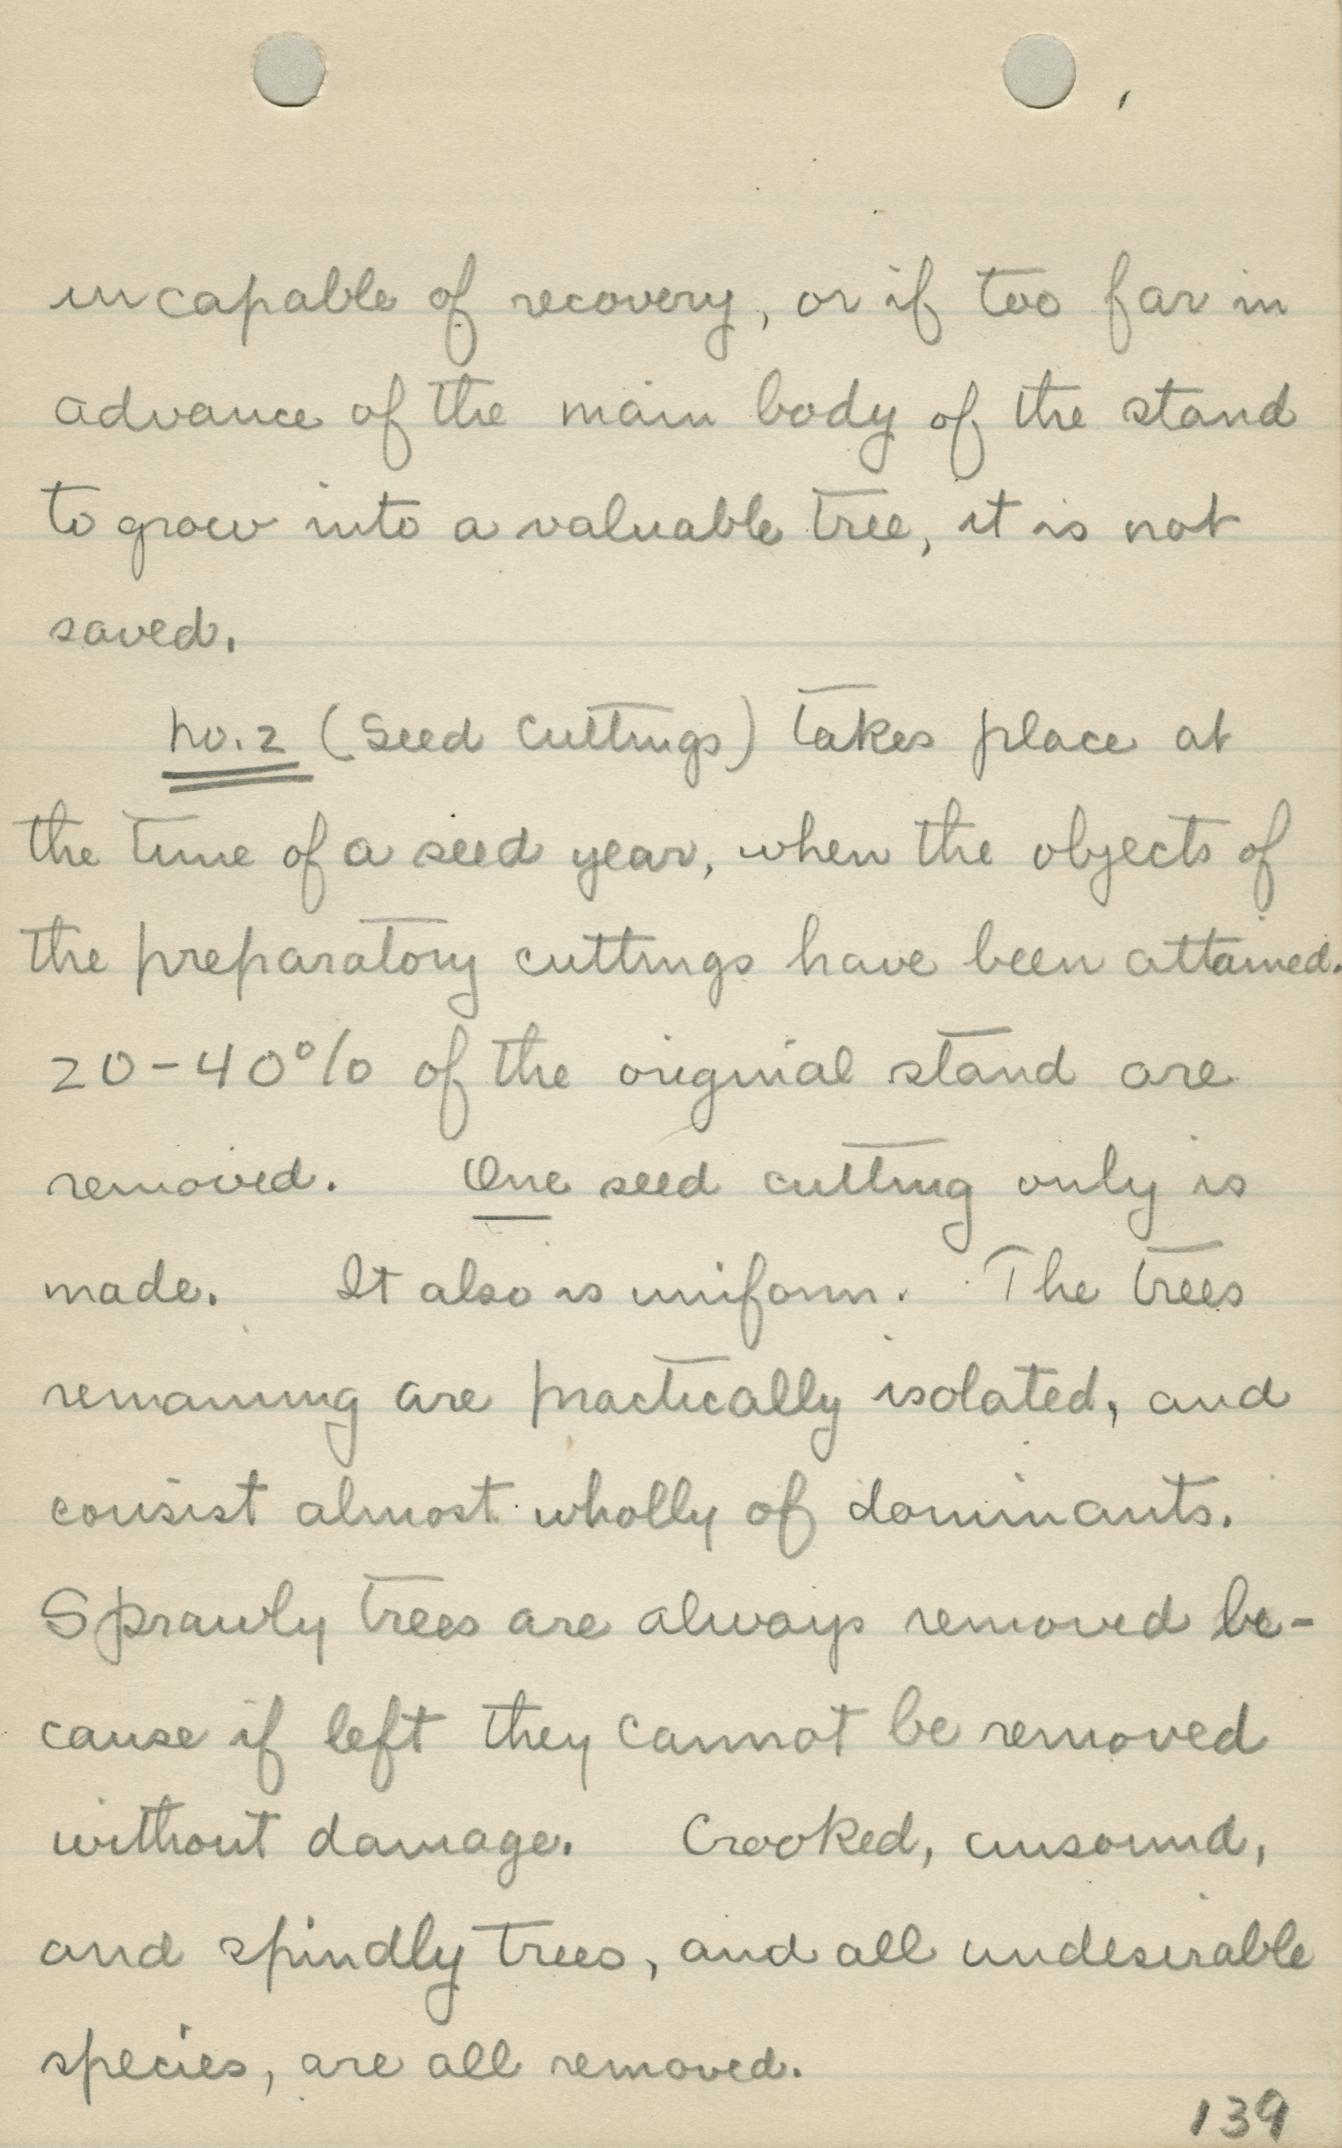 incapable of recovery, or if too far in
advance of the main body of the stand
to grow into a valuable tree, it is not
saved.
No. 2 (Seed Cuttings) takes place at
the time of a seed year, when the objects of
the preparatory cuttings have been attained.
20-40% of the original stand are
removed. One seed cutting only is
made. It also is uniform. The trees
remaining are practically isolated, and
consist almost wholly of dominants.
Sprawly trees are always removed be-
cause if left they cannot be removed
without damage. Crooked, unsound,
and spindly trees, and all undesirable
species, are all removed.
139